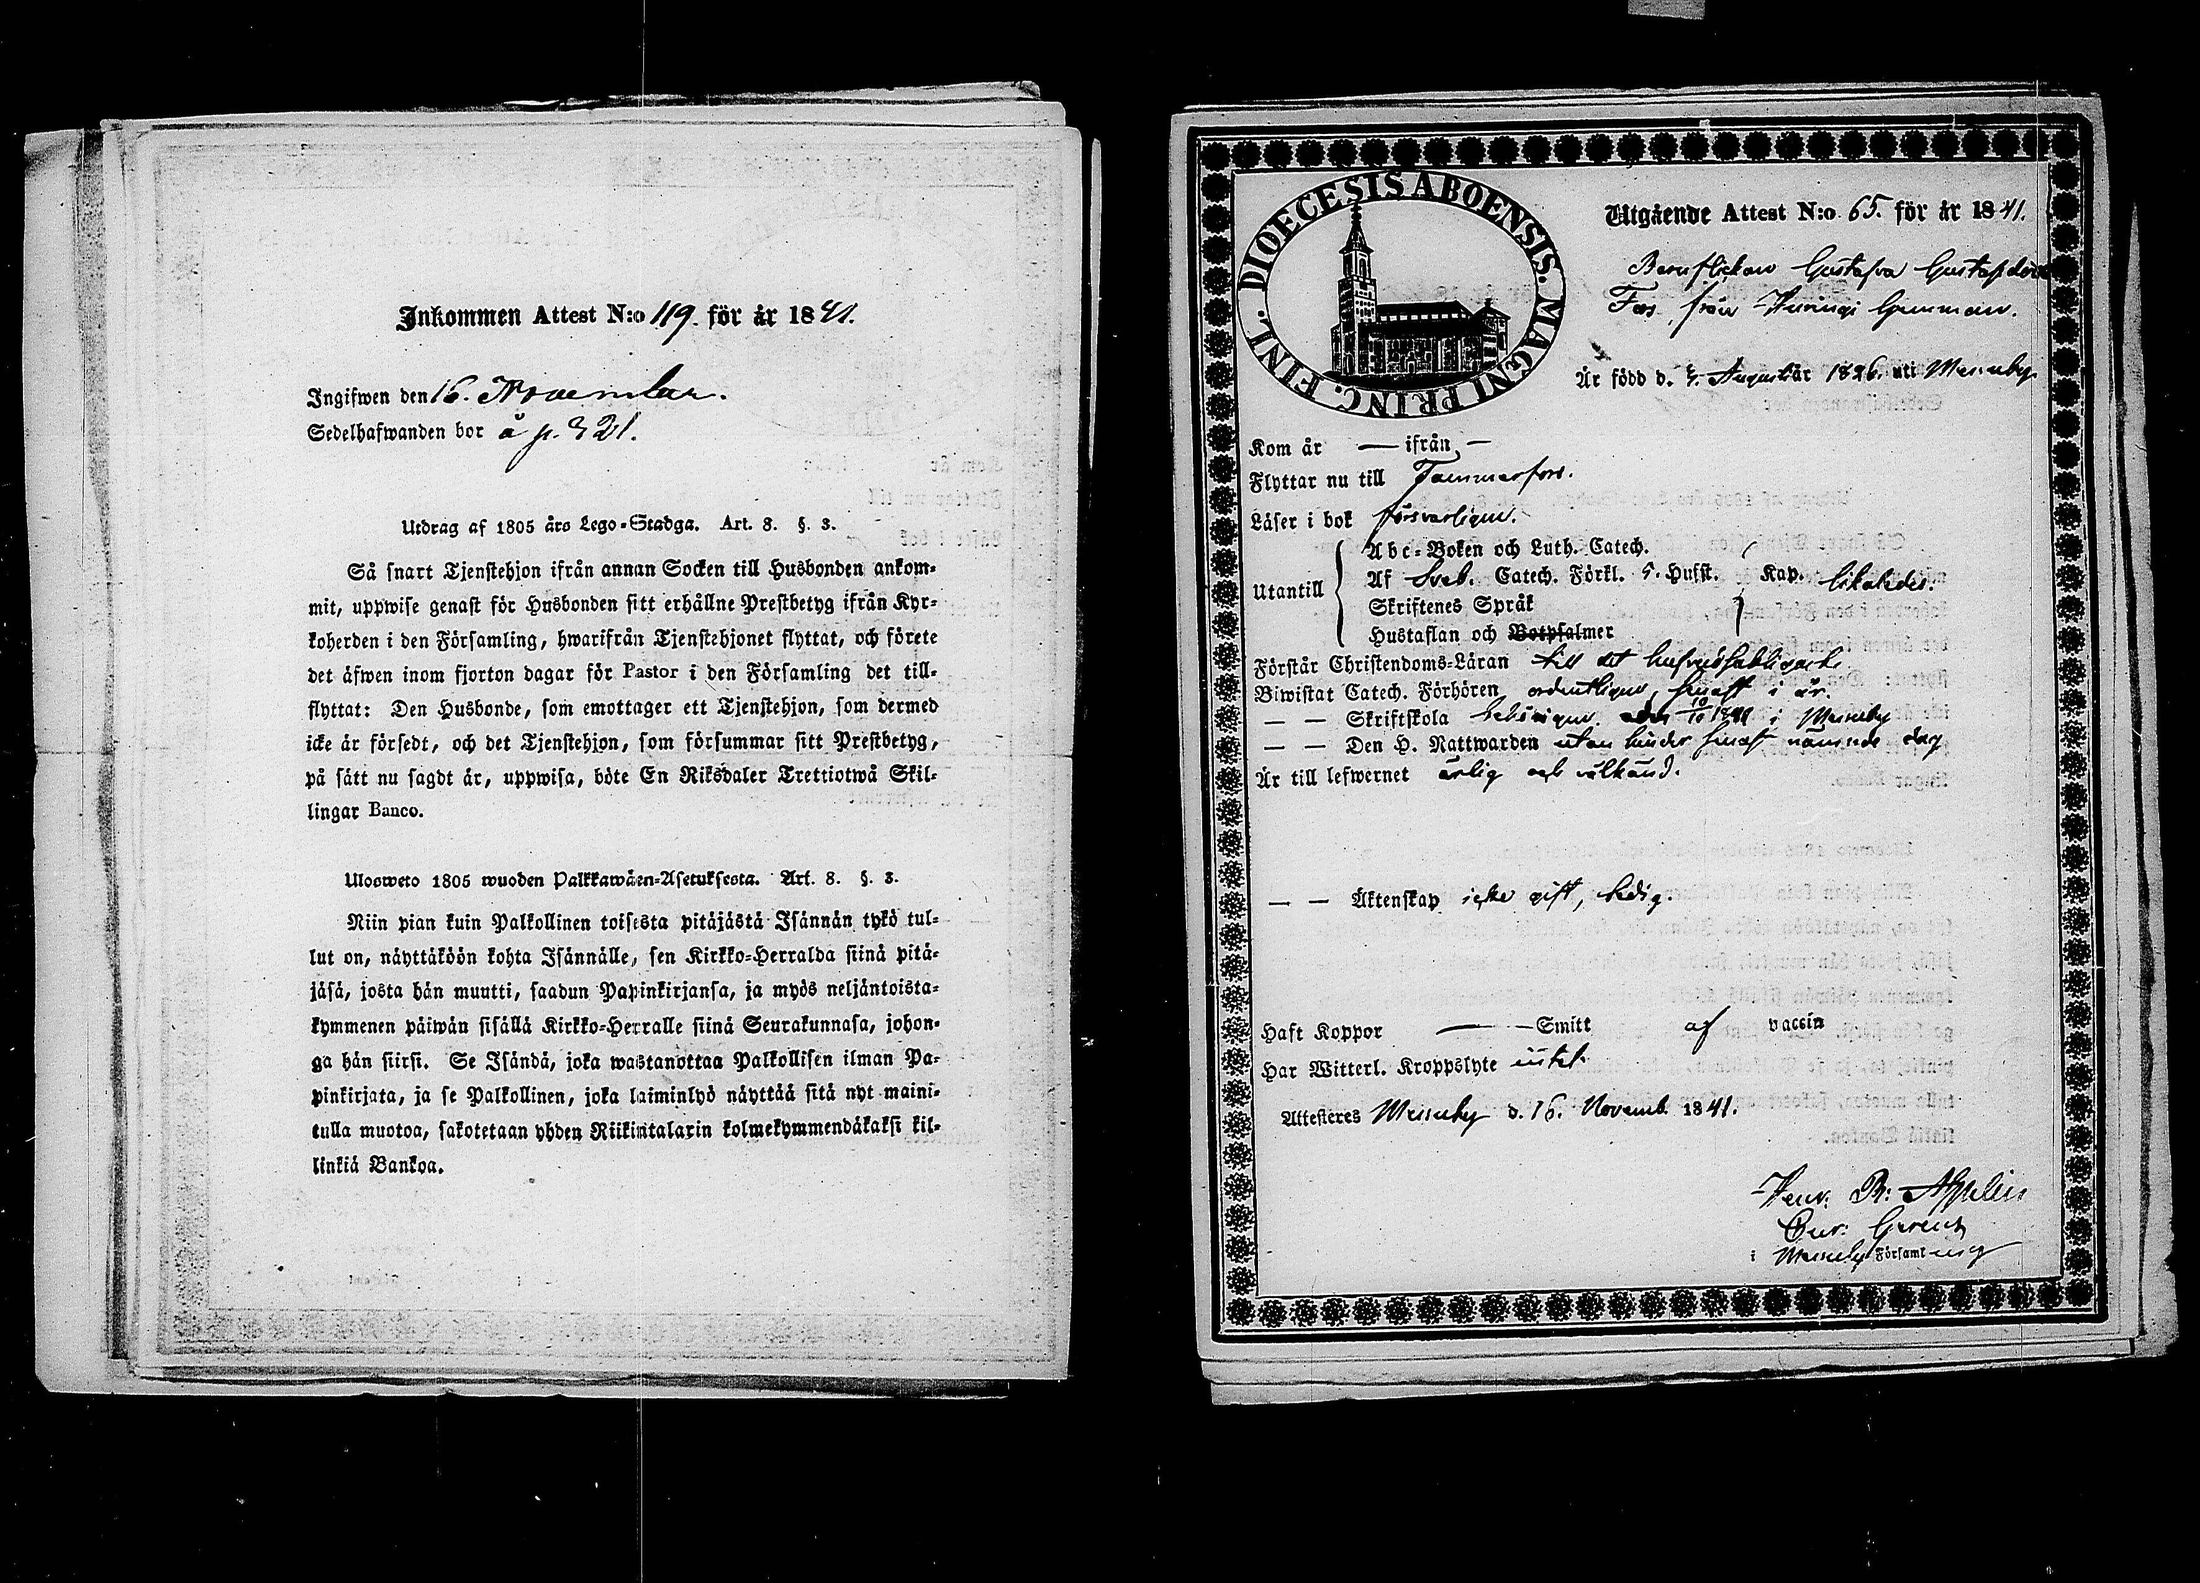 Inkommen Attest N:o 119. för år 1841.
Ingifwen den 16. November.
Sedelhafwanden bor å p. 321.
Utdrag af 1805 års Lego-Stadga. Art. 8. §. 3.
Så snart Tjenstehjon ifrån annan Socken till Husbonden ankom-
mit, uppwise genast för Husbonden sitt erhållne Prestbetyg ifrån Kyr-
koherden i den Församling, hwarifrån Tjenstehjonet flyttat, och förete
det äfwen inom fjorton dagar för Pastor i den Församling det till-
flyttat: Den Husbonde, som emottager ett Tjenstehjon, som dermed
icke är försedt, och det Tjenstehjon, som försummar sitt Prestbetyg,
på sätt nu sagdt är, uppwisa, böte En Riksdaler Trettiotwå Skil-
lingar Banco.
Ulosweto 1805 wuoden Palkkawäen-Asetuksesta. Art. 8. §. 3.
Niin pian kuin Palkollinen toisesta pitäjästä Isännän tykö tul-
lut on, näyttäköön kohta Isännälle, sen Kirkko-Herralda siinä pitä-
jäsä, josta hän muutti, saadun Papinkirjansa, ja myös neljäntoista-
kymmenen päiwän sisällä Kirkko-Herralle siinä Seurakunnasa, johon-
ga hän siirsi. Se Isändä, joka wastanottaa Palkollisen ilman Pa-
pinkirjata, ja se Palkollinen, joka laiminlyö näyttää sitä nyt maini-
tulla muotoa, sakotetaan yhden Riikintalarin kolmekymmendäkaksi kil-
linkiä Bankoa.
DIOECESIS ABOENSIS. MAGNI PRINC. FINL.
Utgående Attest N:o 65. för år 1841.
Gustafva Gustafsdotter
från
Är född d. 4. August år 1826. uti Messuby
Kom år — ifrån —
Flyttar nu till Tammerfors.
Läser i bok försvarligen.
Utantill
Abc-Boken och Luth. Catech.
Af Sveb. Catech. Förkl. 5. Hufst. Kap. likaledes.
Skriftenes Språk
Hustaflan och Botpsalmer
Förstår Christendoms-Läran till det hufvudsakligaste
Biwistat Catech. Förhören ordentligen, senast i år.
— — Skriftskola i Messuby
— — Den H. Nattwarden utan hinder senast nämnde dag
Är till lefwernet ärlig och välkänd.
— — Äktenskap icke gift, ledig.
Haft Koppor — Smitt af vaccin
Har Witterl. Kroppslyte intet.
Attesteres Messuby d. 16. Novemb. 1841.
Henr. R: Appelin
Cur: Gerens
i Messuby Församling